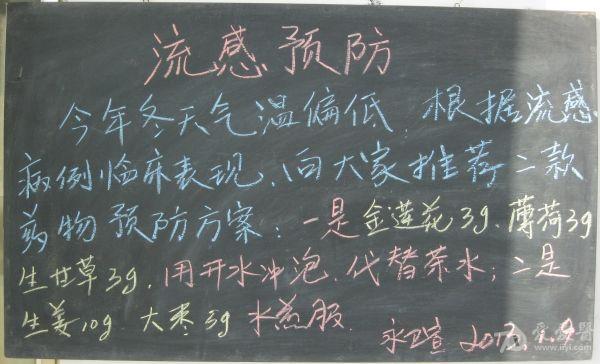 流感预防
今年冬天气温偏低,根据流感
病例临床表现,向大家推荐二款
药物预防方案:一是金莲花3g、薄荷3g
生甘草3g,用开水冲泡,代替茶水;二是
生姜10g 大枣3g 水煎服.
爱爱医
www.iiyi.com